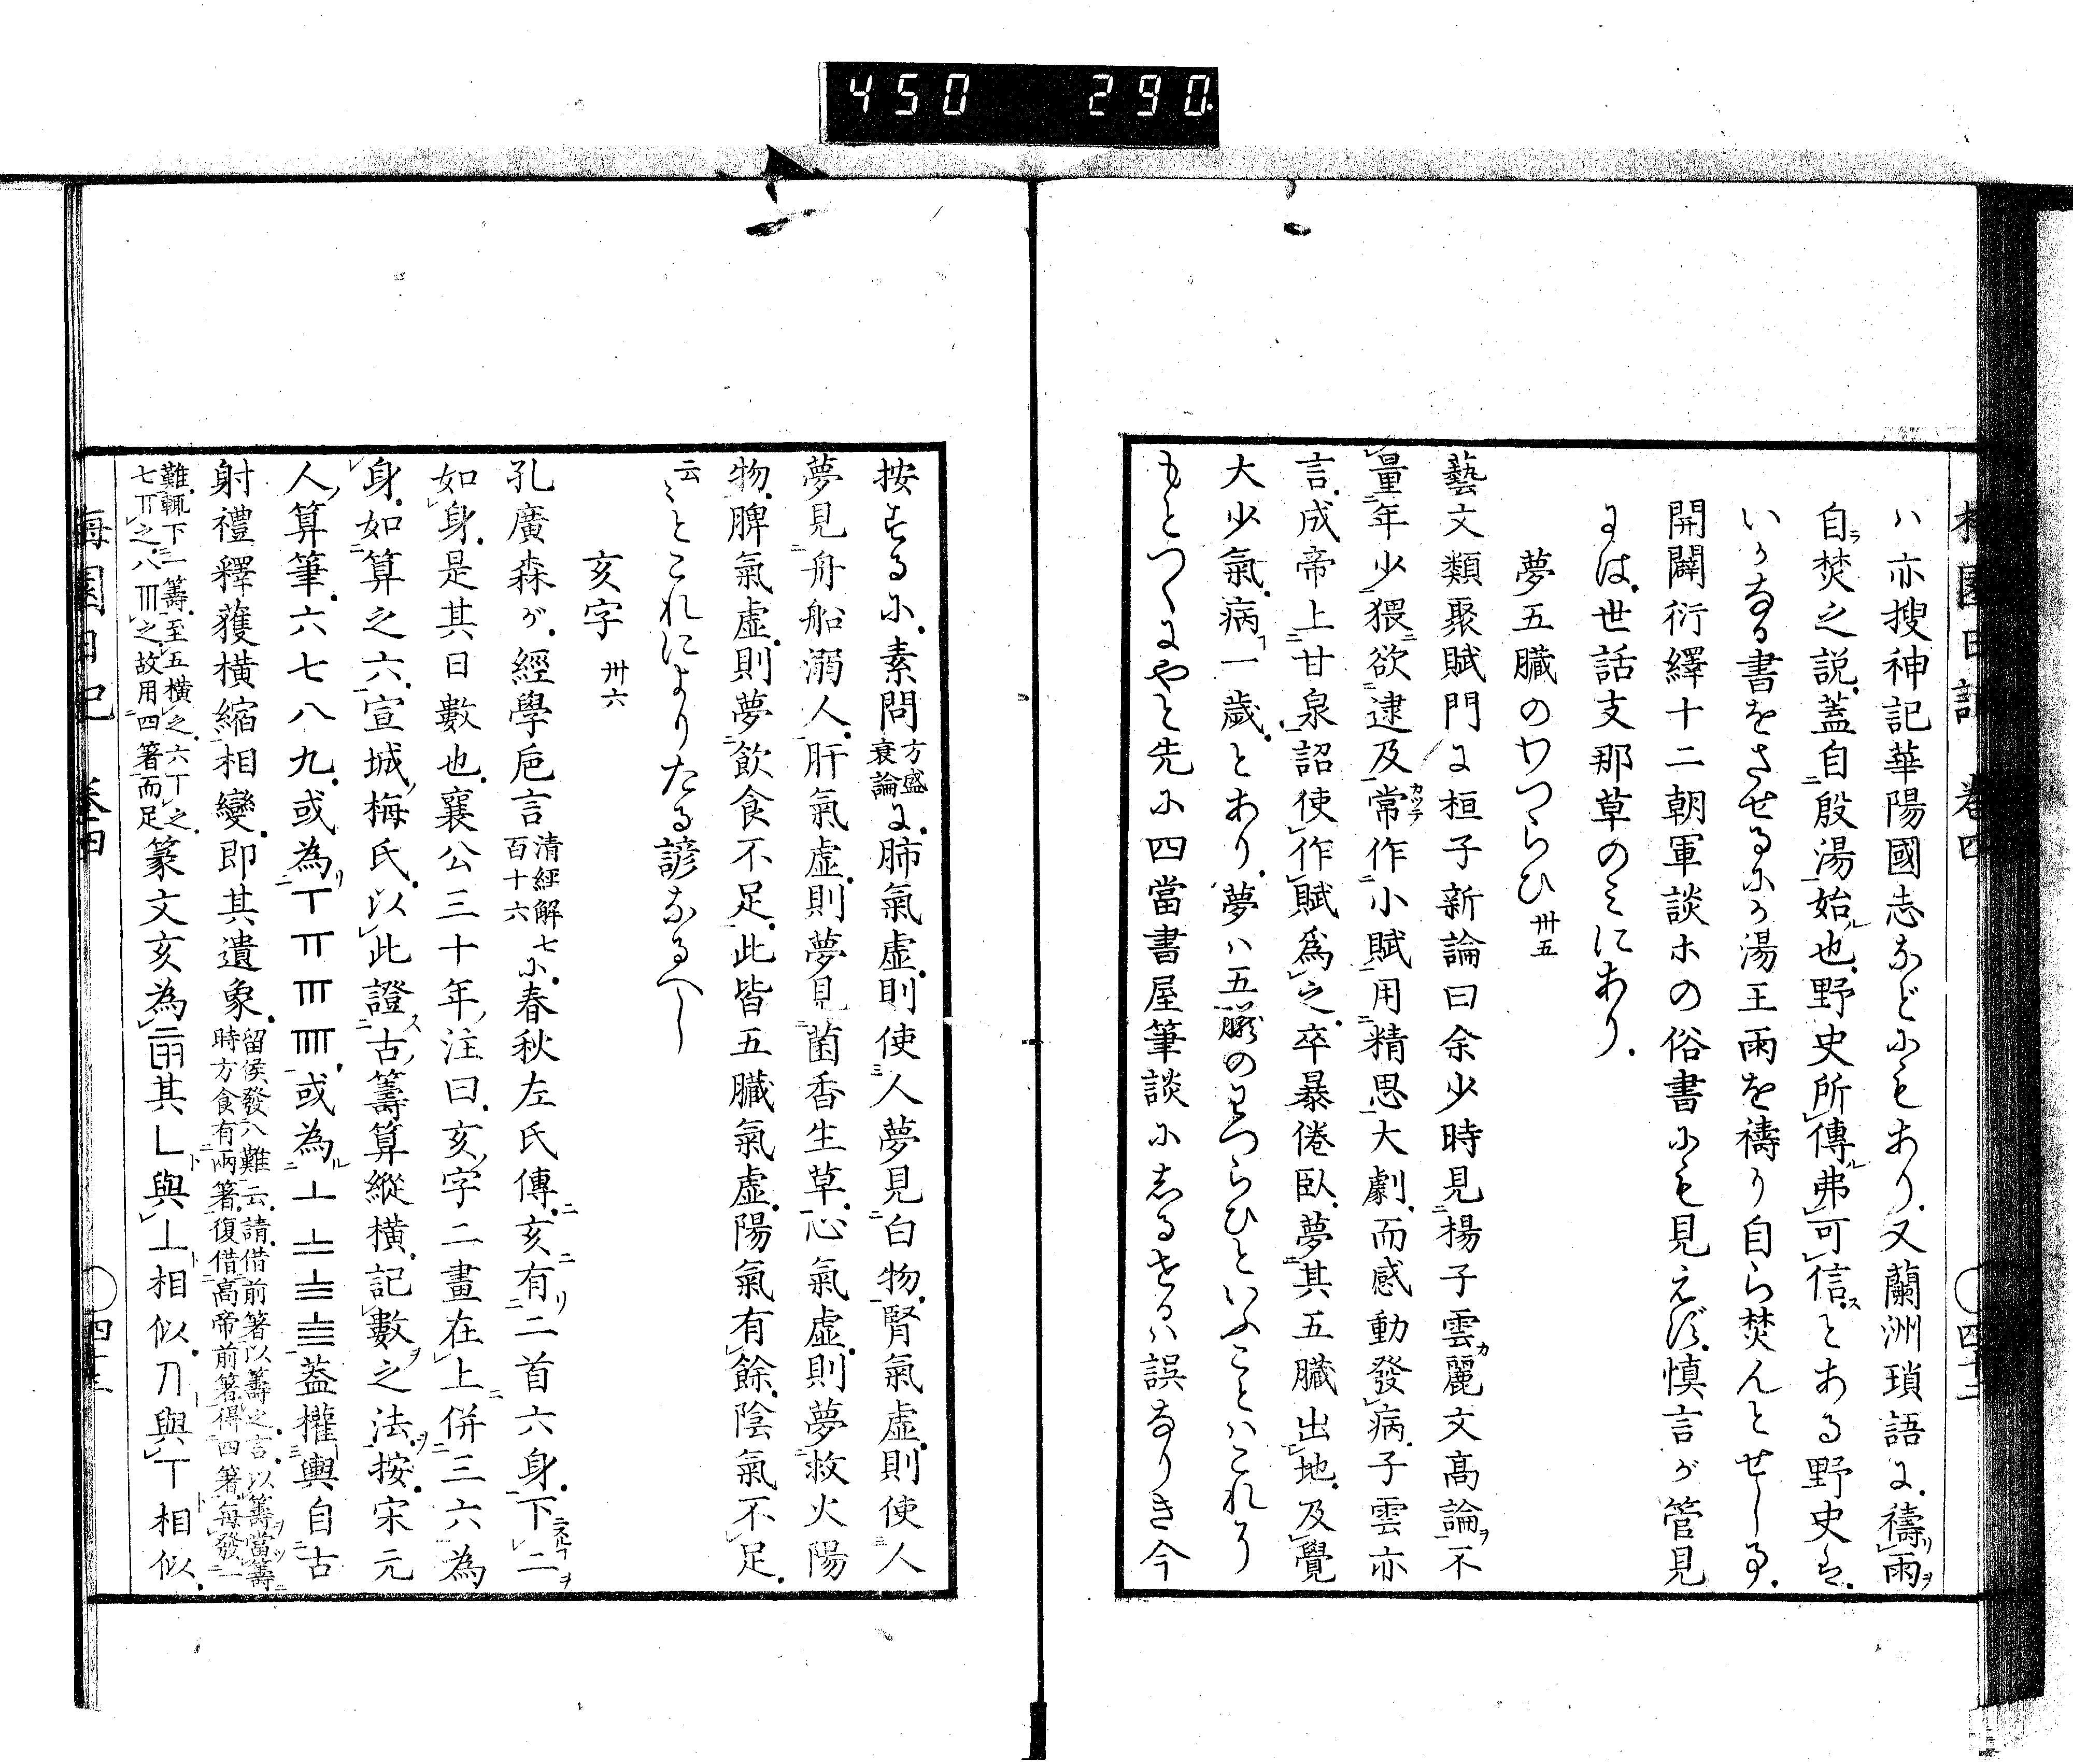 450 290.
ハ亦搜神記華陽國志などにもあり．又蘭洲瑣語に．禱リ雨ヲ
自ラ焚之説．蓋自殷湯始ル也．野史所傳ル弗可信ス．とある野史は．
いかなる書をさせるにか湯王雨を禱り自ら焚んとせし事．
開闢衍繹十二朝軍談ホの俗書にも見えず．慎言が管見
には．世話支那草のミにあり．
夢五臓のわつらひ 卅五
藝文類聚賦門に桓子新論曰余少時見楊子雲麗文高論不
量年少猥欲逮及常作小賦用精思大劇．而感動發病．子雲亦
言．成帝上甘泉詔使作賦爲之．卒暴倦臥．夢其五臓出地．及覺
大少氣．病一歳．とあり．夢ハ五臓のわつらひといふことハこれら
もとつくにやと先に四當書屋筆談にしるせるハ誤なりき今
按るに．素問方盛衰論に．肺氣虚．則使人夢見白物．腎氣虚．則使人
夢見舟船溺人．肝氣虚．則夢見菌香生草．心氣虚．則夢救火陽
物．脾氣虚．則夢飲食不足．此皆五臓氣虚．陽氣有餘．陰氣不足．
云〻とこれによりたる諺なるへし
亥字 卅六
孔廣森が．經學巵言清經解七百十六に．春秋左氏傳．亥有二首六身．下二
如身．是其日數也．襄公三十年．注曰．亥字二畫在上併三六為
身．如算之六．宣城梅氏．以此證古籌算縱横．記數之法．按．宋元
人算筆．六七八九．或為丅𝍧𝍨𝍩．或為⊥𝍮𝍯𝍰蓋權輿自古
射禮釋獲横縮相變．即其遺象．留侯發八難云．請借前箸以籌之．言．以箸當籌時方食有兩箸．復借高帝前箸．得四箸．每發一
難．輒下一籌．至五横之．六丅之．七𝍧之．八𝍨之．故用四箸而足 篆文亥為其乚與⊥相似．刀與丅相似．
梅園日記 巻四 四十三